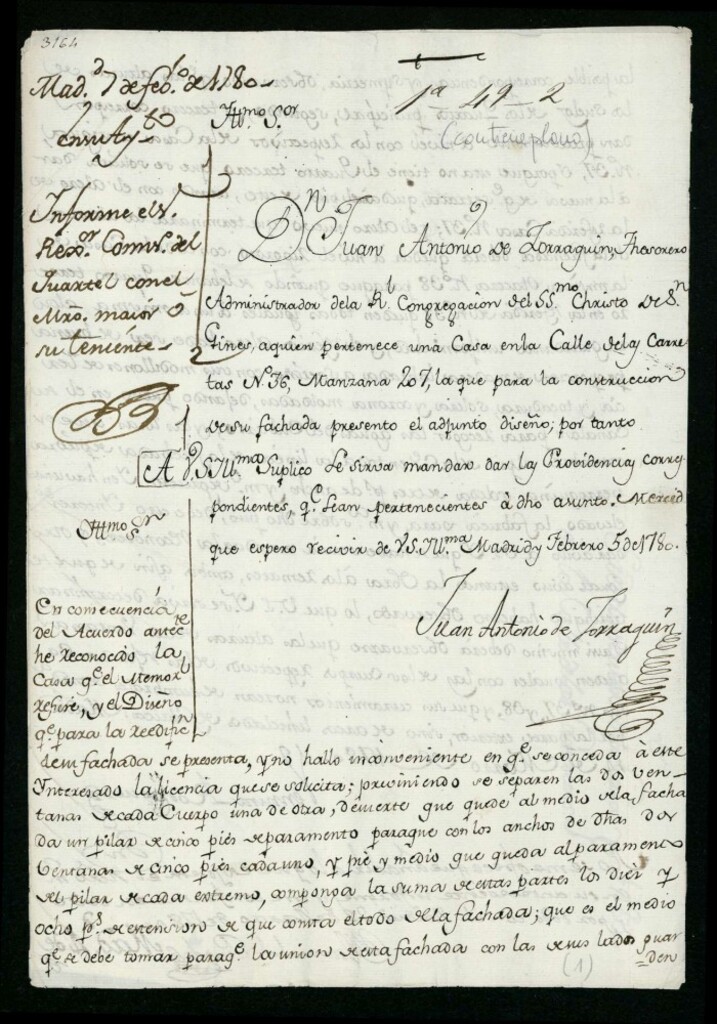 3164
Mad.d 7 de feb.o de 1780
1a 49 - 2
(contiene plano)
En su Ay.to
Informe el S.
Rexor. Comis. del
Quartel con el
Mro. maior ó
su teniente
Yllmo Sor
Dn. Juan Antonio de Zorraquin, Thesorero
Administrador de la Rl. Congregacion del SSmo. Christo de Sn.
Gines, aquien pertenece una Casa en la Calle delas Carre
tas No. 36, Manzana 207, la que para la construccion
de su fachada presento el adjunto diseño; por tanto
A V.S.Yllma. Suplico se sirva mandar dar las Providencias corres
pondientes, q.e sean pertenecientes à dho asunto. Merced
que espero recivir de V.S.Yll.ma Madrid y Febrero 5 de 1780.
Juan Antonio de Zorraquin
Yllmo. Sr.
En consecuencia
del Acuerdo antecte.
he reconocido la
Casa q.e el Memorl.
refiere, y el Diseño
q.e para la Reedificn.
de su fachada se presenta, y no hallo inconveniente en q.e se conceda à este
Ynteresado la licencia que se solicita; previniendo se separen las dos ven-
tanas de cada Cuerpo una de otra, de suerte que quede al medio de la facha
da un pilar de cinco pies de paramento para que con los anchos de dhas dos
ventanas de cinco pies cada uno, y pie y medio que queda al paramento
del pilar de cada extremo, componga la suma de estas partes los diez y
ocho ps. de extension de que consta el todo de la fachada; que es el medio
q.e se debe tomar para q.e la union de esta fachada con las de sus lados guar
=den
(1)